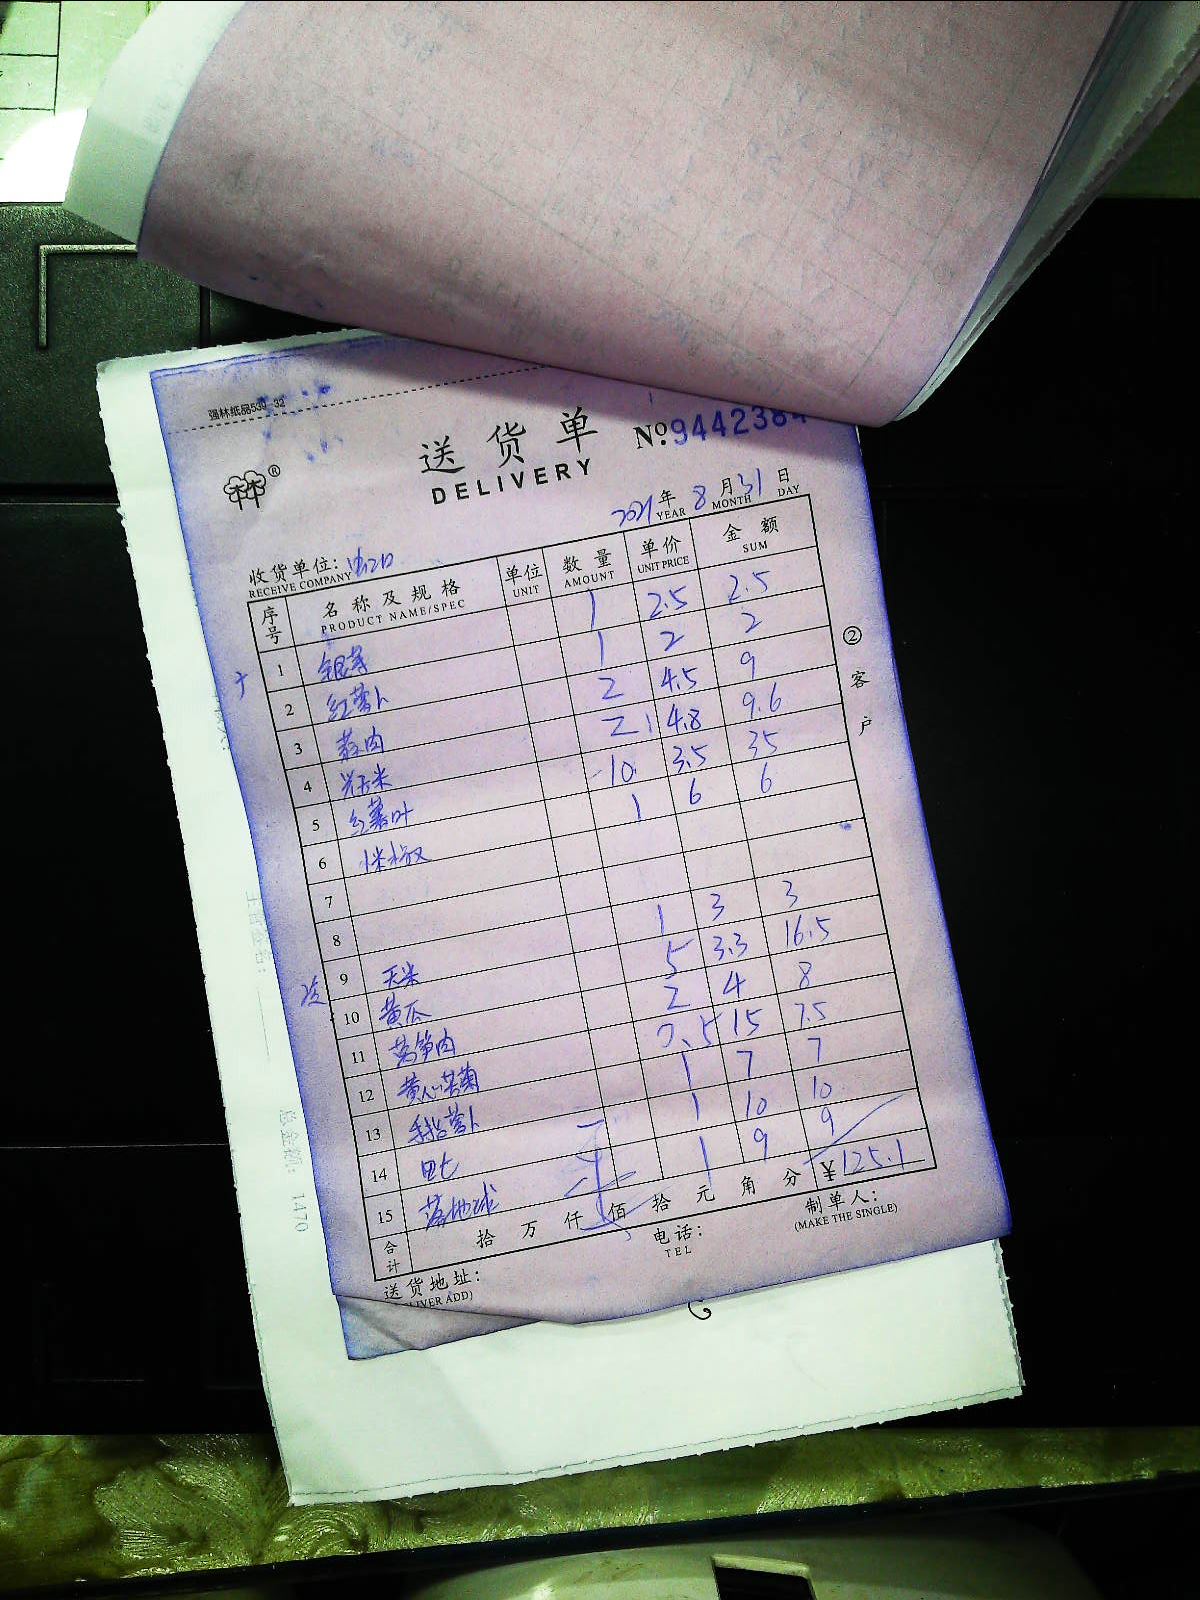 强林纸品539-32
送货单
DELIVERY
No.9442384
2021年 8月 31日
YEAR MONTH DAY
收货单位:
RECEIVE COMPANY
序号 名称及规格 单位 数量 单价 金额
PRODUCT NAME/SPEC UNIT AMOUNT UNIT PRICE SUM
1 银芽 1 2.5 2.5
2 红萝卜 1 2 2
3 蒜肉 2 4.5 9
4 2 4.8 9.6
5 红薯叶 10 3.5 35
6 米椒 1 6 6
7
8
9 玉米 1 3 3
10 黄瓜 5 3.3 16.5
11 莴笋肉 2 4 8
12 黄心苦菊 0.5 15 7.5
13 手指萝卜 1 7 7
14 田七 1 10 10
15 落地球 1 9 9
合计 拾 万 仟 佰 拾 元 角 分 ¥125.1
送货地址:
LIVER ADD)
电话:
TEL
制单人:
(MAKE THE SINGLE)
②客户
总金额: 1470